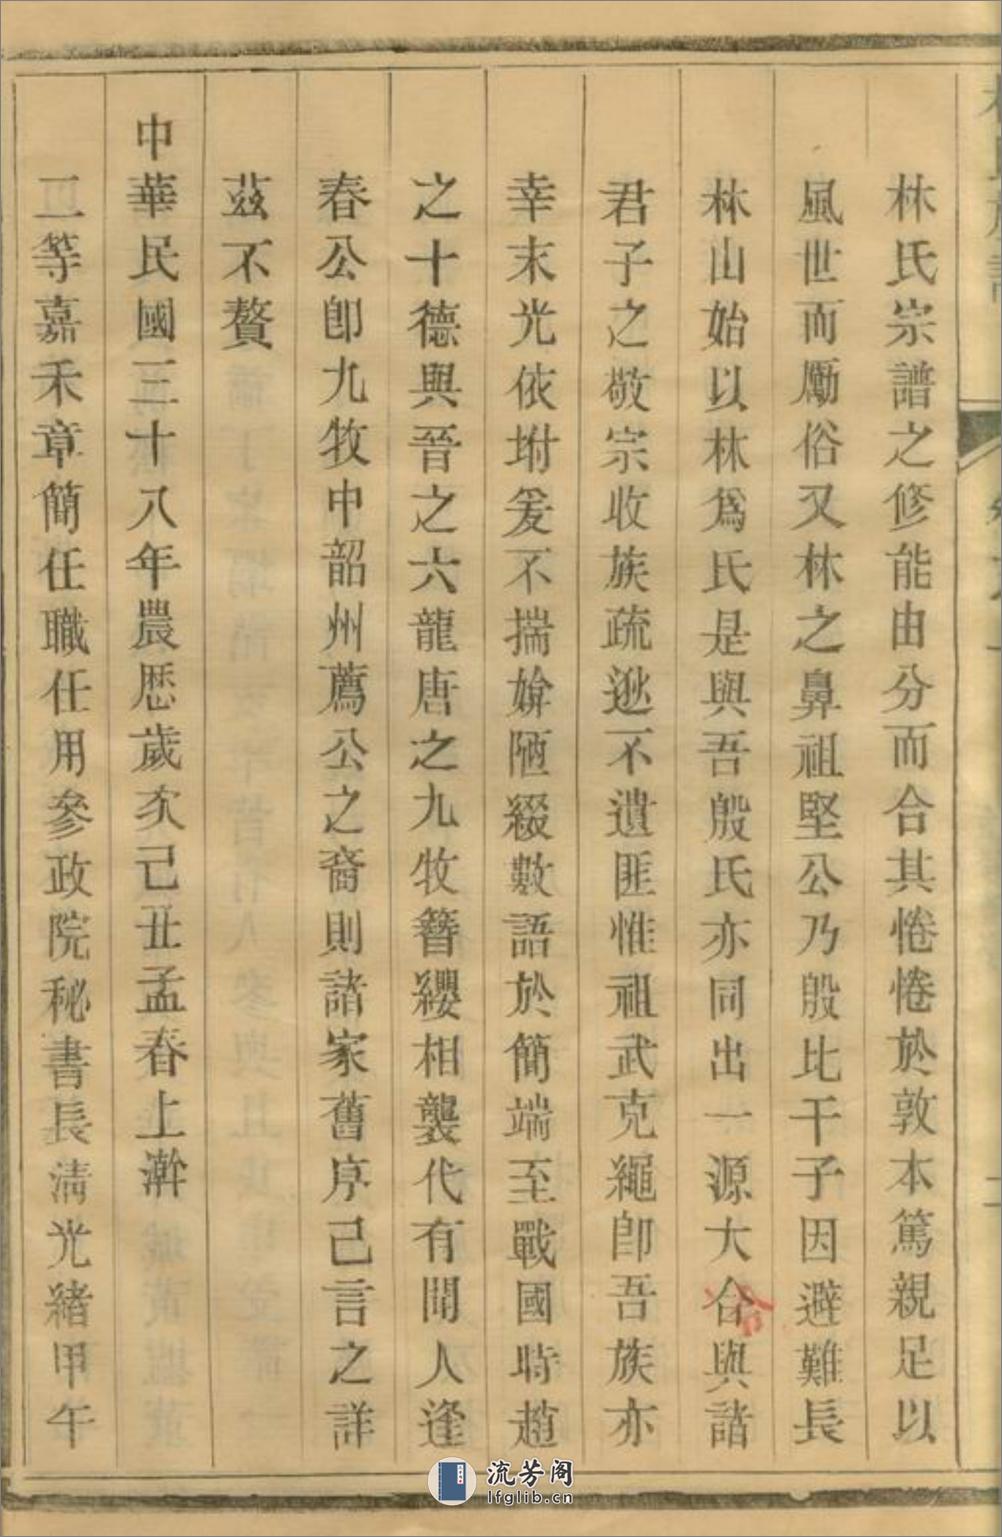 林氏宗譜之修能由分而合其惓惓於敦本篤親足以
風世而勵俗又林之鼻祖堅公乃殷比干子因避難長
林山始以林爲氏是與吾殷氏亦同出一源大合與諸
君子之敬宗收族疏逖不遺匪惟祖武克繩卽吾族亦
幸末光依坿爰不揣媕陋綴數語於簡端至戰國時趙
之十德與晉之六龍唐之九牧簪纓相襲代有聞人逢
春公卽九牧中韶州薦公之裔則諸家舊序已言之詳
茲不贅
中華民國三十八年農歷歲次己丑孟春上澣
二等嘉禾章簡任職任用參政院秘書長淸光緒甲午
流芳阁
lfglib.cn